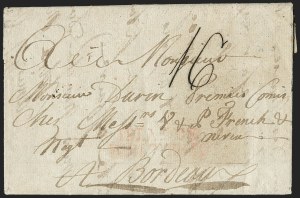 A Monsieur
16
Monsieur Premier Comis
Chez Mess^rs V & P French &
A Bordeaux